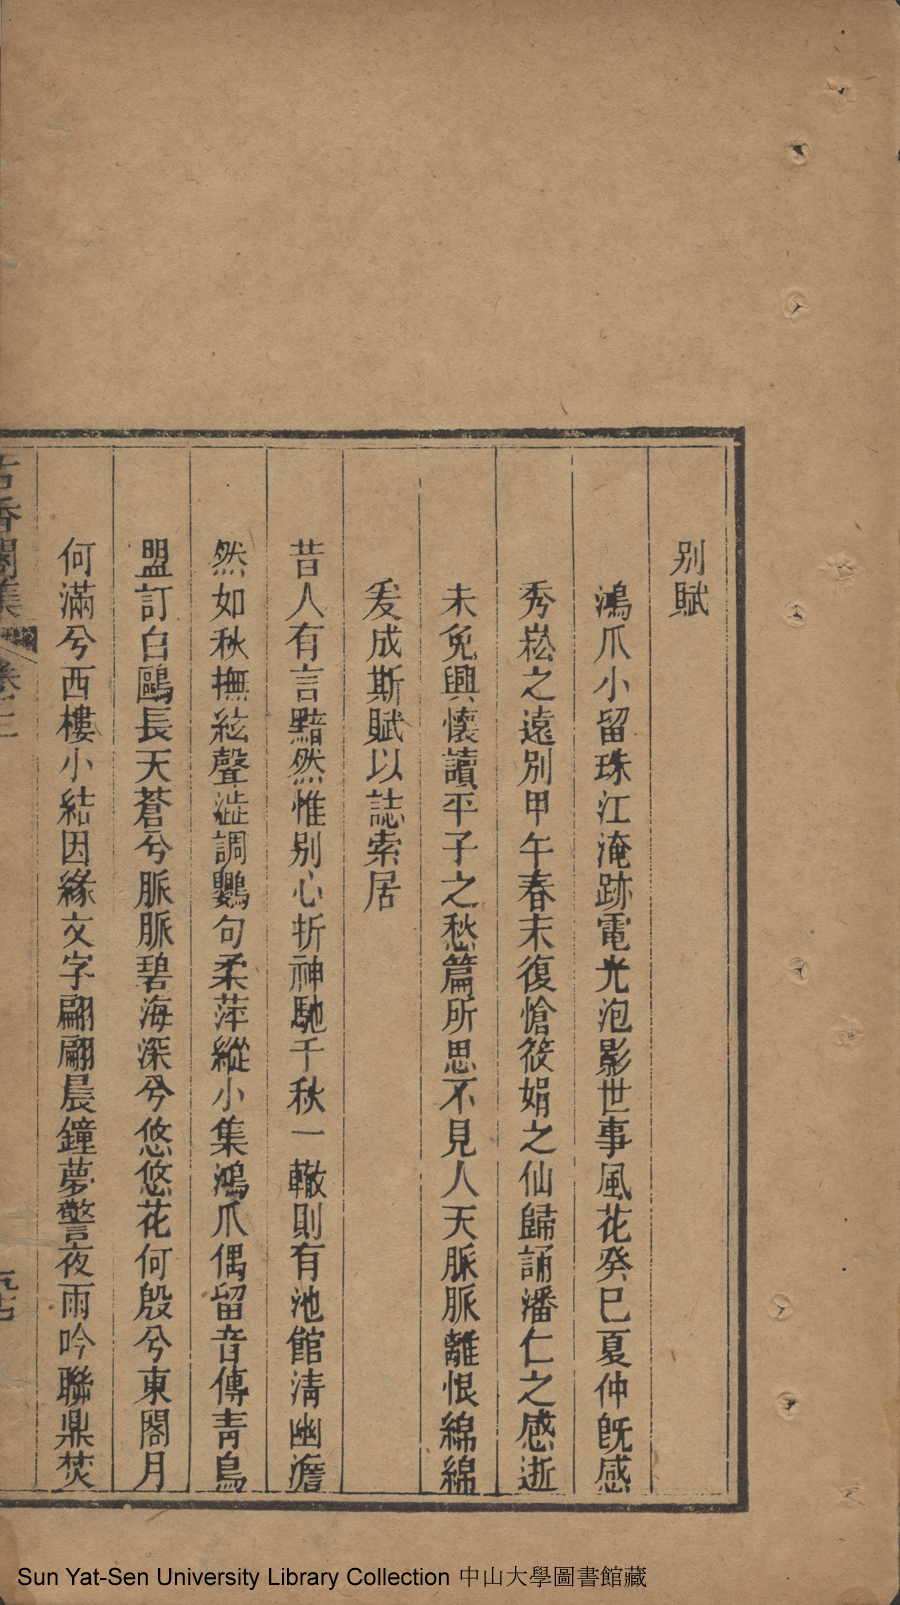 别賦
鴻爪小留珠江淹跡電光泡影世事風花癸巳夏仲旣感
秀崧之遠別甲午春末復愴筱娟之仙歸誦潘仁之感逝
未免興懷讀平子之愁篇所思不見人天脈脈離恨綿綿
爰成斯賦以誌索居
昔人有言黯然惟别心折神馳千秋一轍則有池館清幽澹
然如秋撫絃聲澁調鸚句柔萍縱小集鴻爪偶留音傳青鳥
盟訂白鷗長天蒼兮脈脈碧海深兮悠悠花何殷兮東閣月
何滿兮西樓小結因緣文字翩翩晨鐘夢警夜雨吟聯鼎焚
古香閣集 卷二
Sun Yat-Sen University Library Collection 中山大學圖書館藏